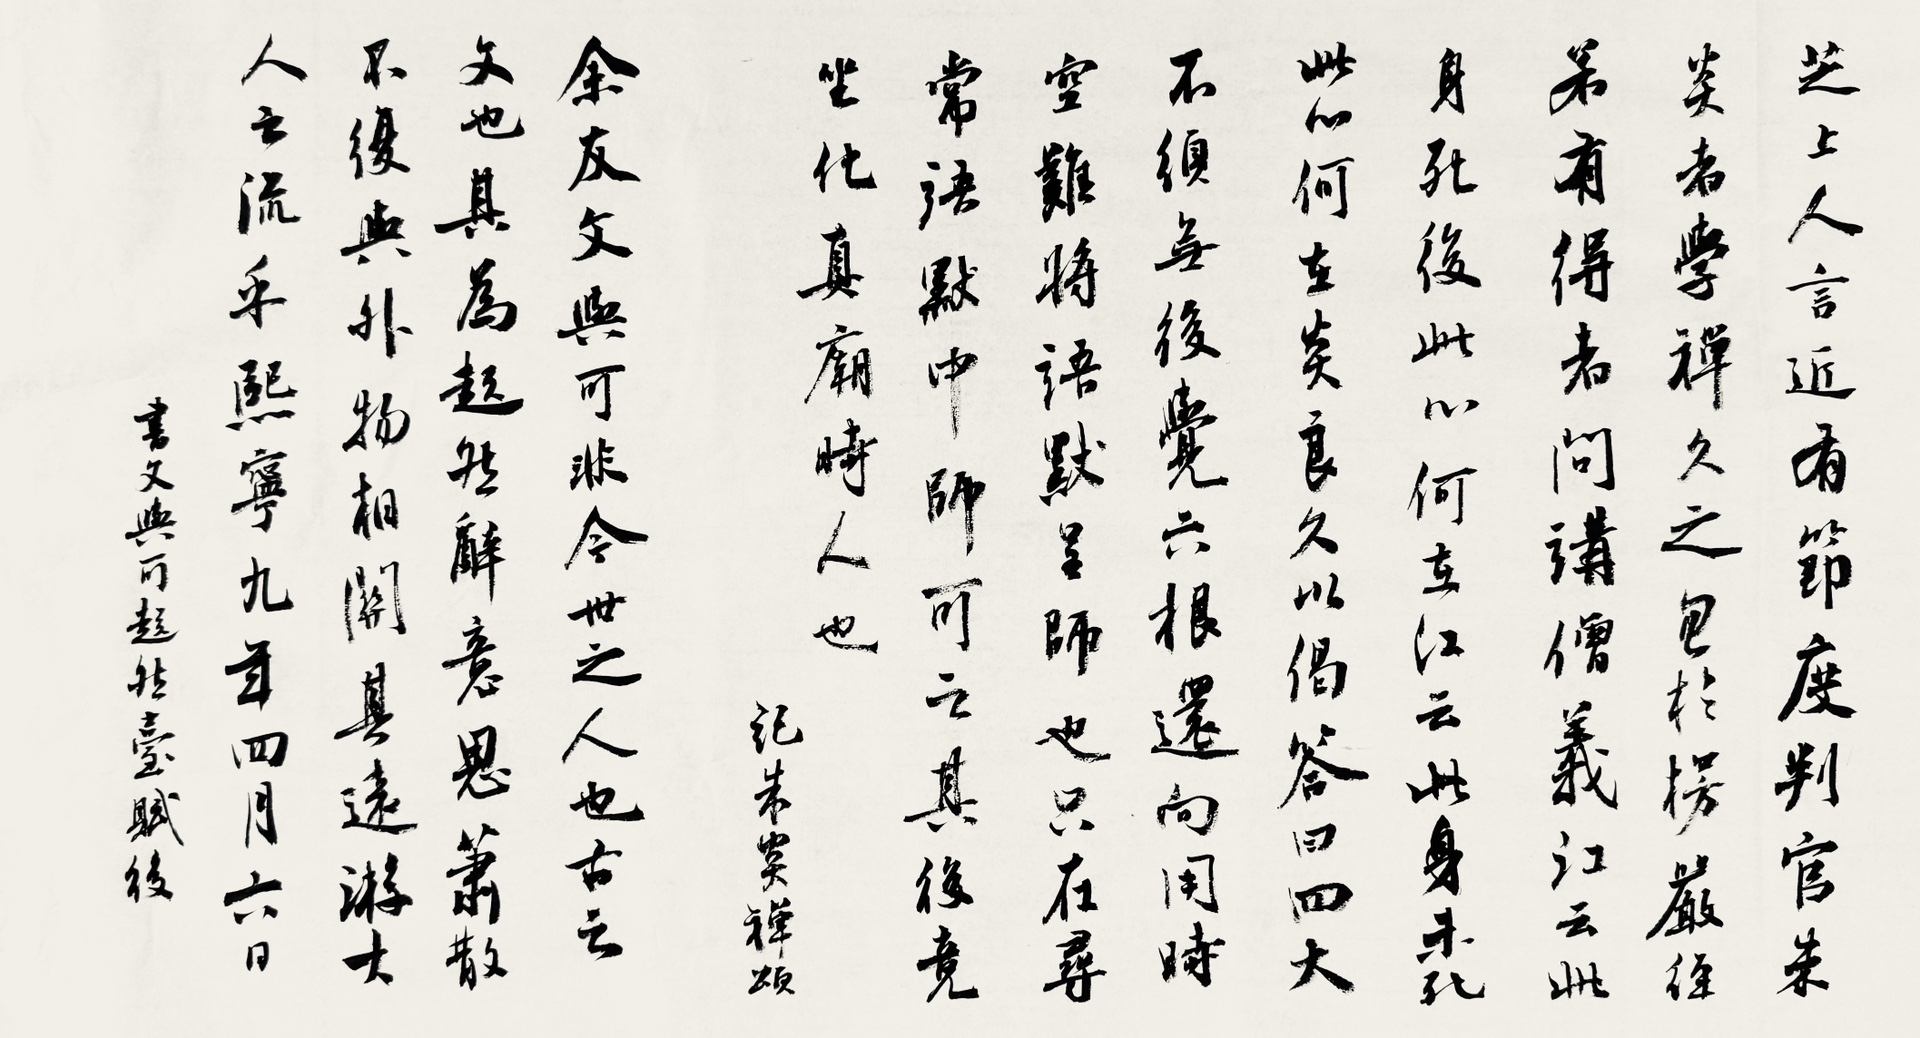 芝上人言近有節度判官朱
炎者學禪久之忽於楞嚴經
若有得者問講僧義江云此
身死後此心何在江云此身未死
此心何在炎良久以偈答曰四大
不須無後覺六根還向用時
空難將語默呈師也只在尋
常語默中師可之其後竟
坐化真廟時人也
記朱炎禪頌
余友文與可非今世之人也古之
文也其為超然辭意思蕭散
不復與外物相關其遠游大
人之流乎熙寧九年四月六日
書文與可超然臺賦後